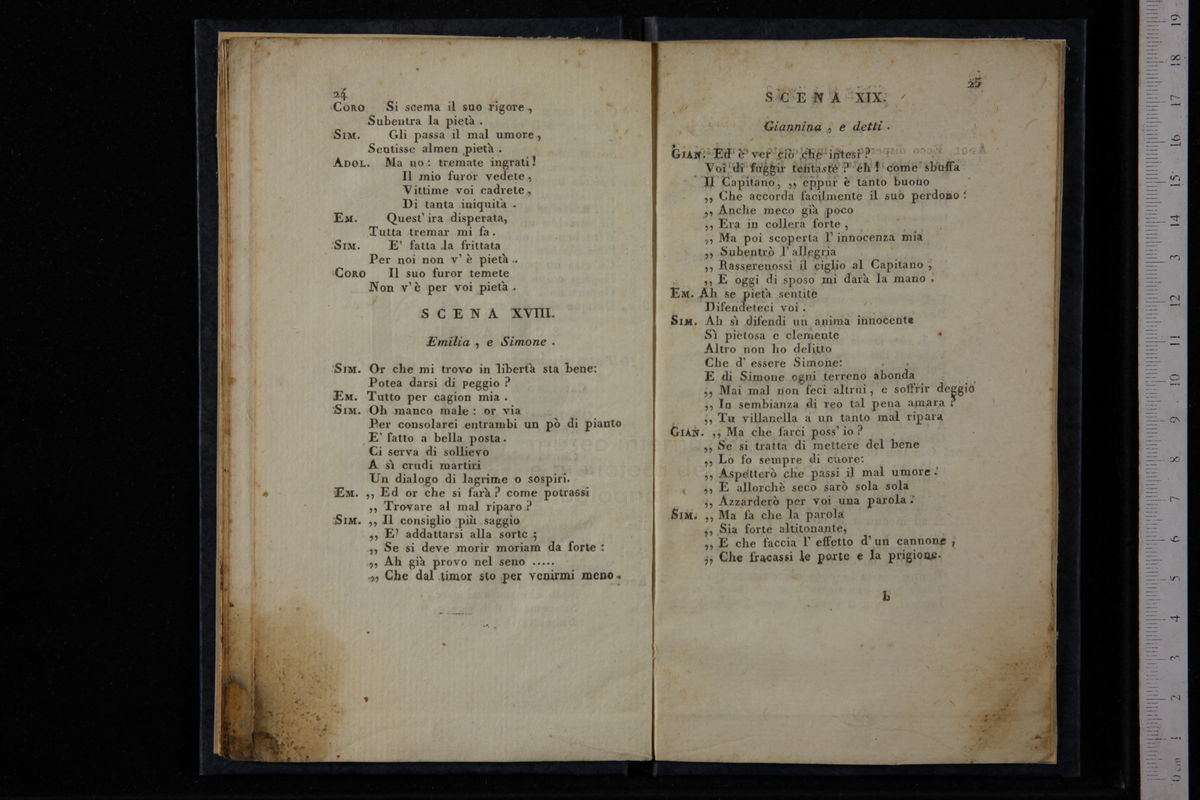 24
CORO Si scema il suo rigore,
Subentra la pietà.
SIM. Gli passa il mal umore,
Sentisse almen pietà.
ADOL. Ma no: tremate ingrati!
Il mio furor vedete,
Vittime voi cadrete,
Di tanta iniquità.
EM. Quest' ira disperata,
Tutta tremar mi fa.
SIM. E' fatta la frittata
Per noi non v' è pietà.
CORO Il suo furor temete
Non v' è per voi pietà.
SCENA XVIII.
Emilia, e Simone.
SIM. Or che mi trovo in libertà sta bene:
Potea darsi di peggio?
EM. Tutto per cagion mia.
SIM. Oh manco male: or via
Per consolarci entrambi un pò di pianto
E' fatto a bella posta.
Ci serva di sollievo
A sì crudi martiri
Un dialogo di lagrime o sospiri.
EM. ,, Ed or che si farà? come potrassi
,, Trovare al mal riparo?
SIM. ,, Il consiglio più saggio
,, E' addattarsi alla sorte;
,, Se si deve morir moriam da forte:
,, Ah già provo nel seno .....
,, Che dal timor sto per venirmi meno.
25
SCENA XIX.
Giannina, e detti.
GIAN. Ed è ver ciò che intesi?
Voi di fuggir tentaste? eh! come sbuffa
Il Capitano, ,, eppur è tanto buono
,, Che accorda facilmente il suo perdono:
,, Anche meco già poco
,, Era in collera forte,
,, Ma poi scoperta l' innocenza mia
,, Subentrò l' allegria
,, Rasserenossi il ciglio al Capitano,
,, E oggi di sposo mi darà la mano.
EM. Ah se pietà sentite
Difendeteci voi.
SIM. Ah sì difendi un anima innocente
Sì pietosa e clemente
Altro non ho delitto
Che d' essere Simone:
E di Simone ogni terreno abonda
,, Mai mal non feci altrui, e soffrir deggio
,, In sembianza di reo tal pena amara?
,, Tu villanella a un tanto mal ripara
GIAN. ,, Ma che farci poss' io?
,, Se si tratta di mettere del bene
,, Lo fo sempre di cuore:
,, Aspetterò che passi il mal umore.
,, E allorchè seco sarò sola sola
,, Azzarderò per voi una parola.
SIM. ,, Ma fa che la parola
,, Sia forte altitonante,
,, E che faccia l' effetto d' un cannone,
,, Che fracassi le porte e la prigione.
b
0 cm 1 2 3 4 5 6 7 8 9 10 11 12 13 14 15 16 17 18 19